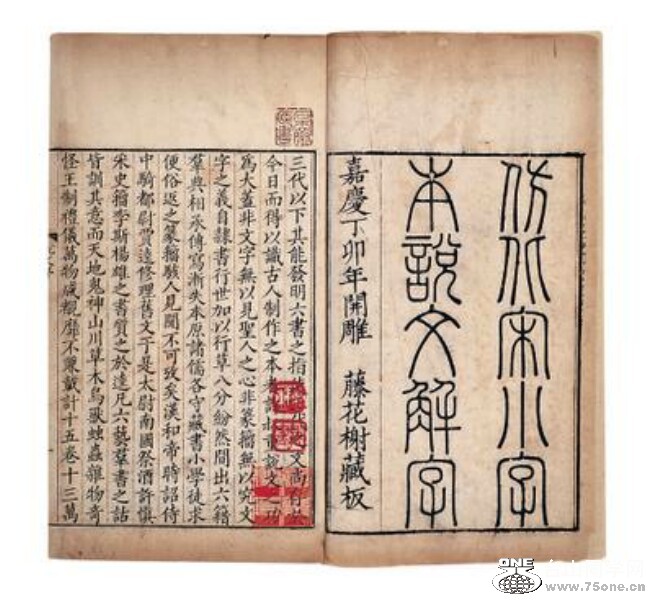 仿北宋小字
本說文解字
嘉慶丁卯年開雕 藤花榭藏板
三代以下其能發明六書之指使之文尚有於
今日而得以識古人制作之本者許叔重說文之功
爲大蓋非文字無以見聖人之心非篆籀無以究文
字之義自隸書行世加以行草八分紛然間出六籍
羣典相承傳寫漸失本原諸儒各守藏書小學徒求
便俗返之篆籀駭人見聞不可攷矣漢和帝時詔侍
中騎都尉賈逵修理舊文于是太尉南國祭酒許慎
采史籀李斯楊雄之書質之於逵凡六藝羣書之詁
皆訓其意而天地鬼神山川草木鳥獸蚰蟲雜物奇
怪王制禮儀萬物咸覩靡不兼載計十五卷十三萬
ONE
www.75one.cn